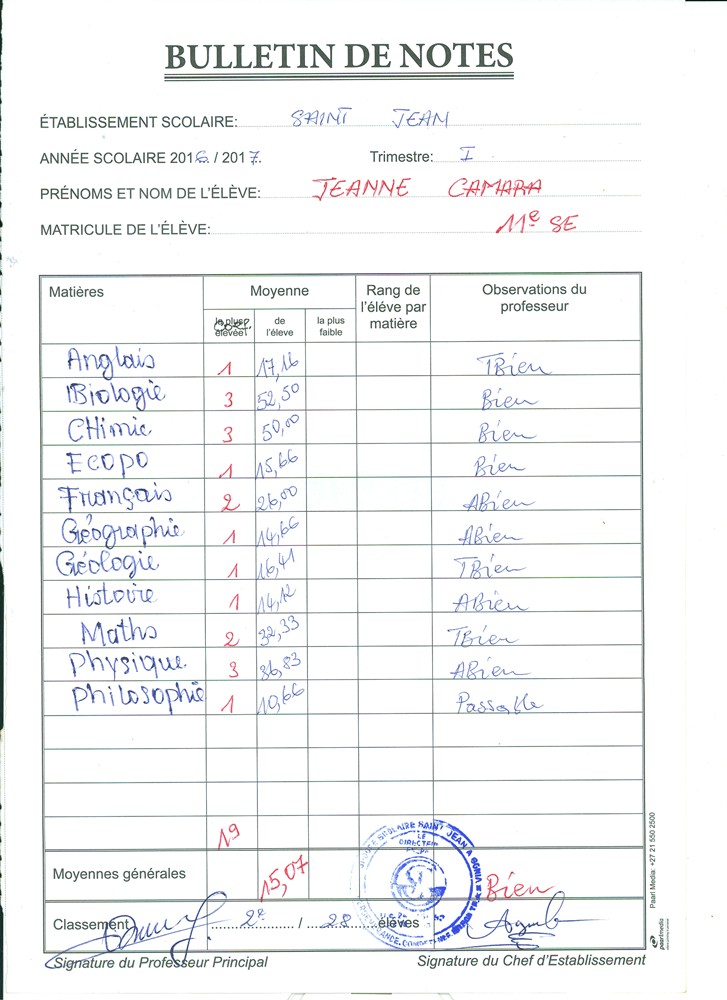 BULLETIN DE NOTES
ÉTABLISSEMENT SCOLAIRE: SAINT JEAN
ANNÉE SCOLAIRE 2016 / 2017. Trimestre: I
PRÉNOMS ET NOM DE L'ÉLÈVE: JEANNE CAMARA
MATRICULE DE L'ÉLÈVE: 11e SE
Matières Moyenne Rang de l'éléve par matière Observations du professeur
la plus élevée de l'éleve la plus faible
Anglais 1 17,16 TBien
Biologie 3 52,50 Bien
CHimie 3 50,00 Bien
ECOPO 1 15,66 Bien
Français 2 26,00 ABien
Géographie 1 14,66 ABien
Géologie 1 16,41 TBien
Histoire 1 14,12 ABien
Maths 2 32,33 TBien
Physique 3 36,83 ABien
Philosophie 1 10,66 Passable
19
Moyennes générales 15,07 Bien
Classement 2e / 28 élèves
LE DIRECTEUR
Signature du Professeur Principal Signature du Chef d'Etablissement
Paarl Media: +27 21 550 2500
paarlmedia